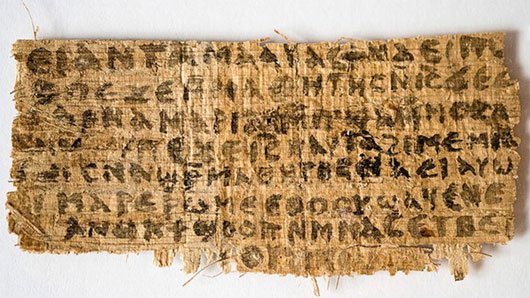 ⲉⲓ ⲁⲛ ⲧⲁⲙⲁⲁⲩ ⲁⲥϯⲛⲁⲉⲓ
ⲡⲉϫⲉ ⲙⲙⲁⲑⲏⲧⲏⲥ ⲛⲓⲥ ϫⲉ ⲥ
ⲁⲣⲛⲁ ⲙⲁⲣⲓⲁⲙ ⲙⲡϣⲁ ⲙⲙⲟⲥ ⲁ
ⲡⲉϫⲉ ⲓⲥ ⲛⲁⲩ ⲧⲁϩⲓⲙⲉ ⲙⲛ
ⲥⲛⲁϣⲣⲙⲁⲑⲏⲧⲏⲥ ⲛⲁⲉⲓ ⲁⲩⲱ
ⲓ ⲙⲁⲣⲉⲣⲱⲙⲉ ⲉⲑⲟⲟⲩ ϣⲁϥⲉ ⲛⲉ
ⲁⲛⲟⲕ ϯϣⲟⲟⲡ ⲛⲙⲙⲁⲥ ⲉⲧⲃⲉ